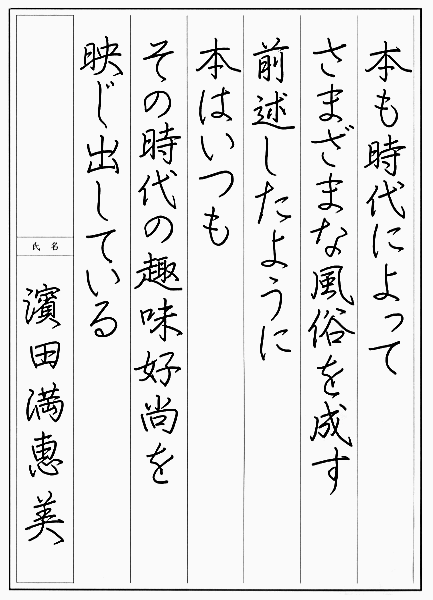 本も時代によって
さまざまな風俗を成す
前述したように
本はいつも
その時代の趣味好尚を
映じ出している
氏名
濱田満恵美